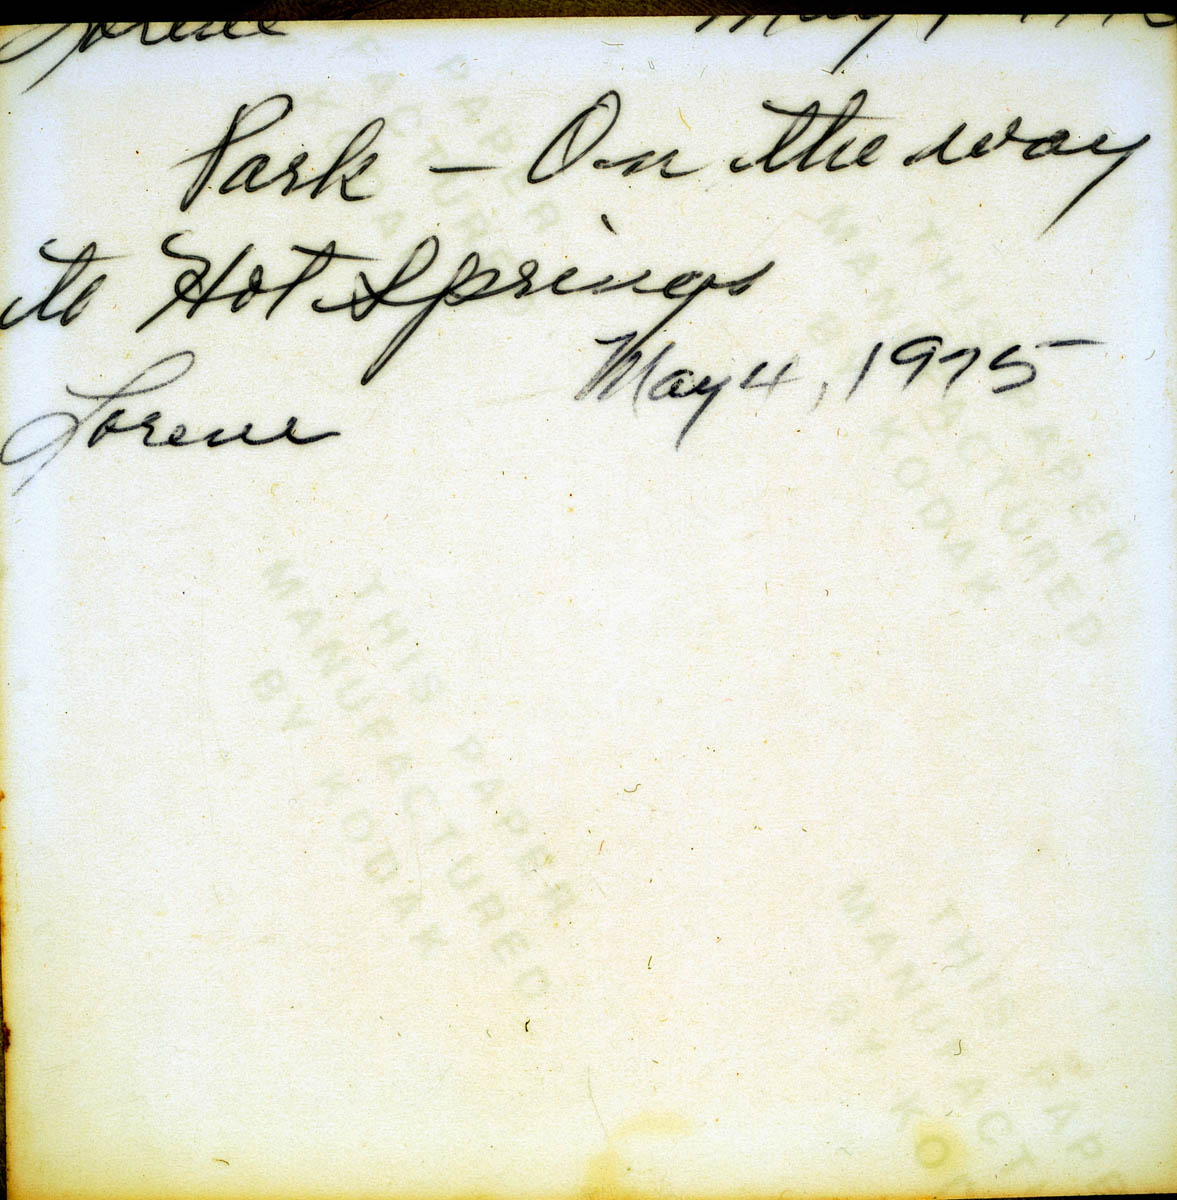 Lorene May 4 1975
Park — On the way
to Hot Springs
May 4, 1975
Lorene
THIS PAPER
MANUFACTURED
BY KODAK
THIS PAPER
MANUFACTURED
BY KODAK
THIS PAPER
MANUFACTURED
BY KODAK
THIS PAP
MANUFACT
BY KO